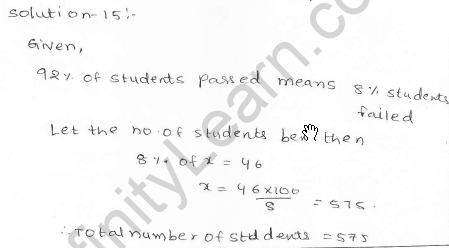 Solution-15:-
Given,
92% of students passed means 8% students
failed
Let the no. of students be then
8% of x = 46
x = 46×100/8 = 575.
∴ Total number of students = 575
finityLearn.com